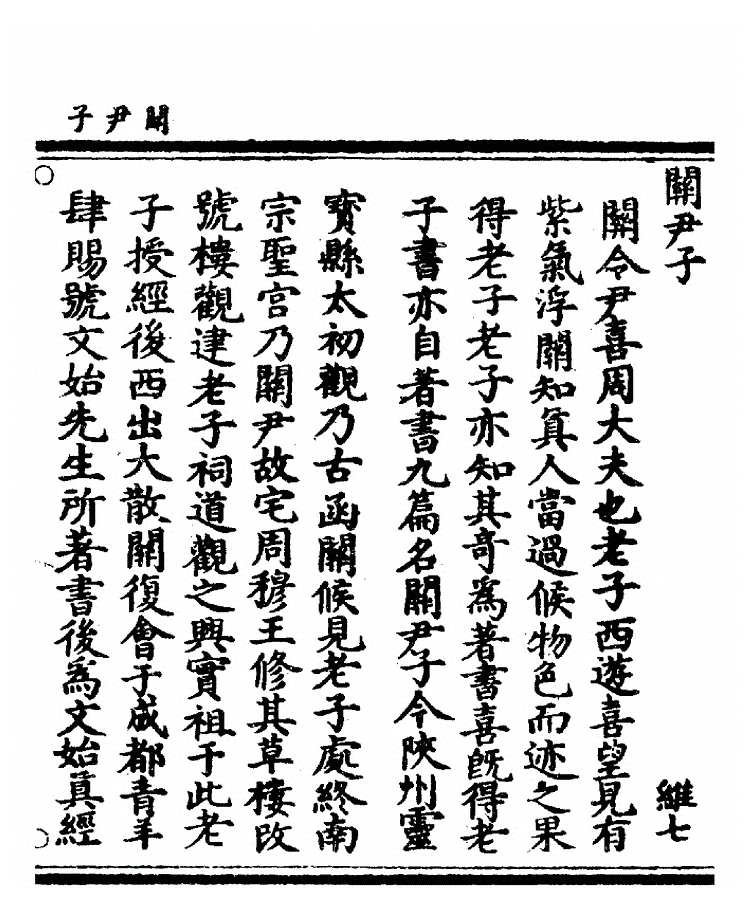 關尹子
關尹子
維七
關令尹喜周大夫也老子西遊喜望見有
紫氣浮關知真人當過候物色而迹之果
得老子老子亦知其奇為著書喜既得老
子書亦自著書九篇名關尹子今陝州靈
寶縣太初觀乃古函關候見老子處終南
宗聖宮乃關尹故宅周穆王修其草樓改
號樓觀建老子祠道觀之興實祖于此老
子授經後西出大散關復會于成都青羊
肆賜號文始先生所著書後為文始真經